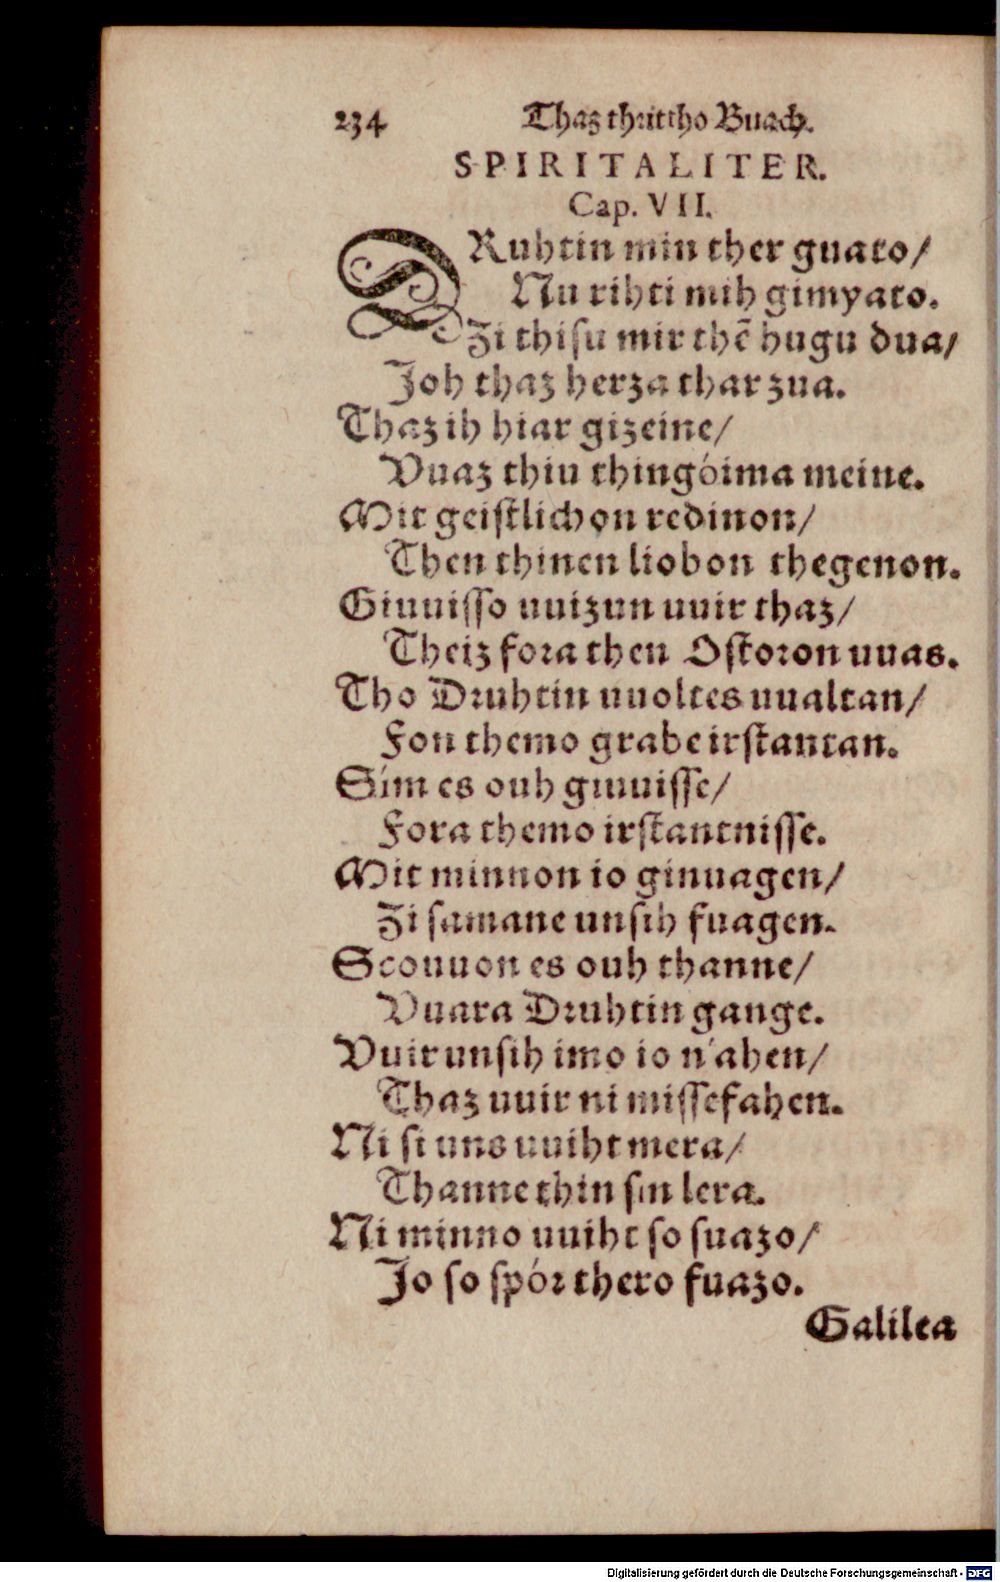 234 Thaz thrittho Buach.
SPIRITALITER.
Cap. VII.
DRuhtin min ther guato/
Nu rihti mih gimyato.
Zi thisu mir thē hugu dua/
Joh thaz herza thar zua.
Thaz ih hiar gizeine/
Vuaz thiu thingóima meine.
Mit geistlichon redinon/
Then thinen liobon thegenon.
Giuuisso uuizun uuir thaz/
Theiz fora then Ostoron uuas.
Tho Druhtin uuoltes uualtan/
Fon themo grabe irstantan.
Sím es ouh giuuisse/
Fora themo irstantnisse.
Mit minnon io ginuagen/
Zi samane unsih fuagen.
Scouuon es ouh thanne/
Vuara Druhtin gange.
Vuir unsih imo io n'ahen/
Thaz uuir ni missefahen.
Ni si uns uuiht mera/
Thanne thin sin lera.
Ni minno uuiht so suazo/
Jo so spór thero fuazo.
Galilea
Digitalisierung gefördert durch die Deutsche Forschungsgemeinschaft - DFG